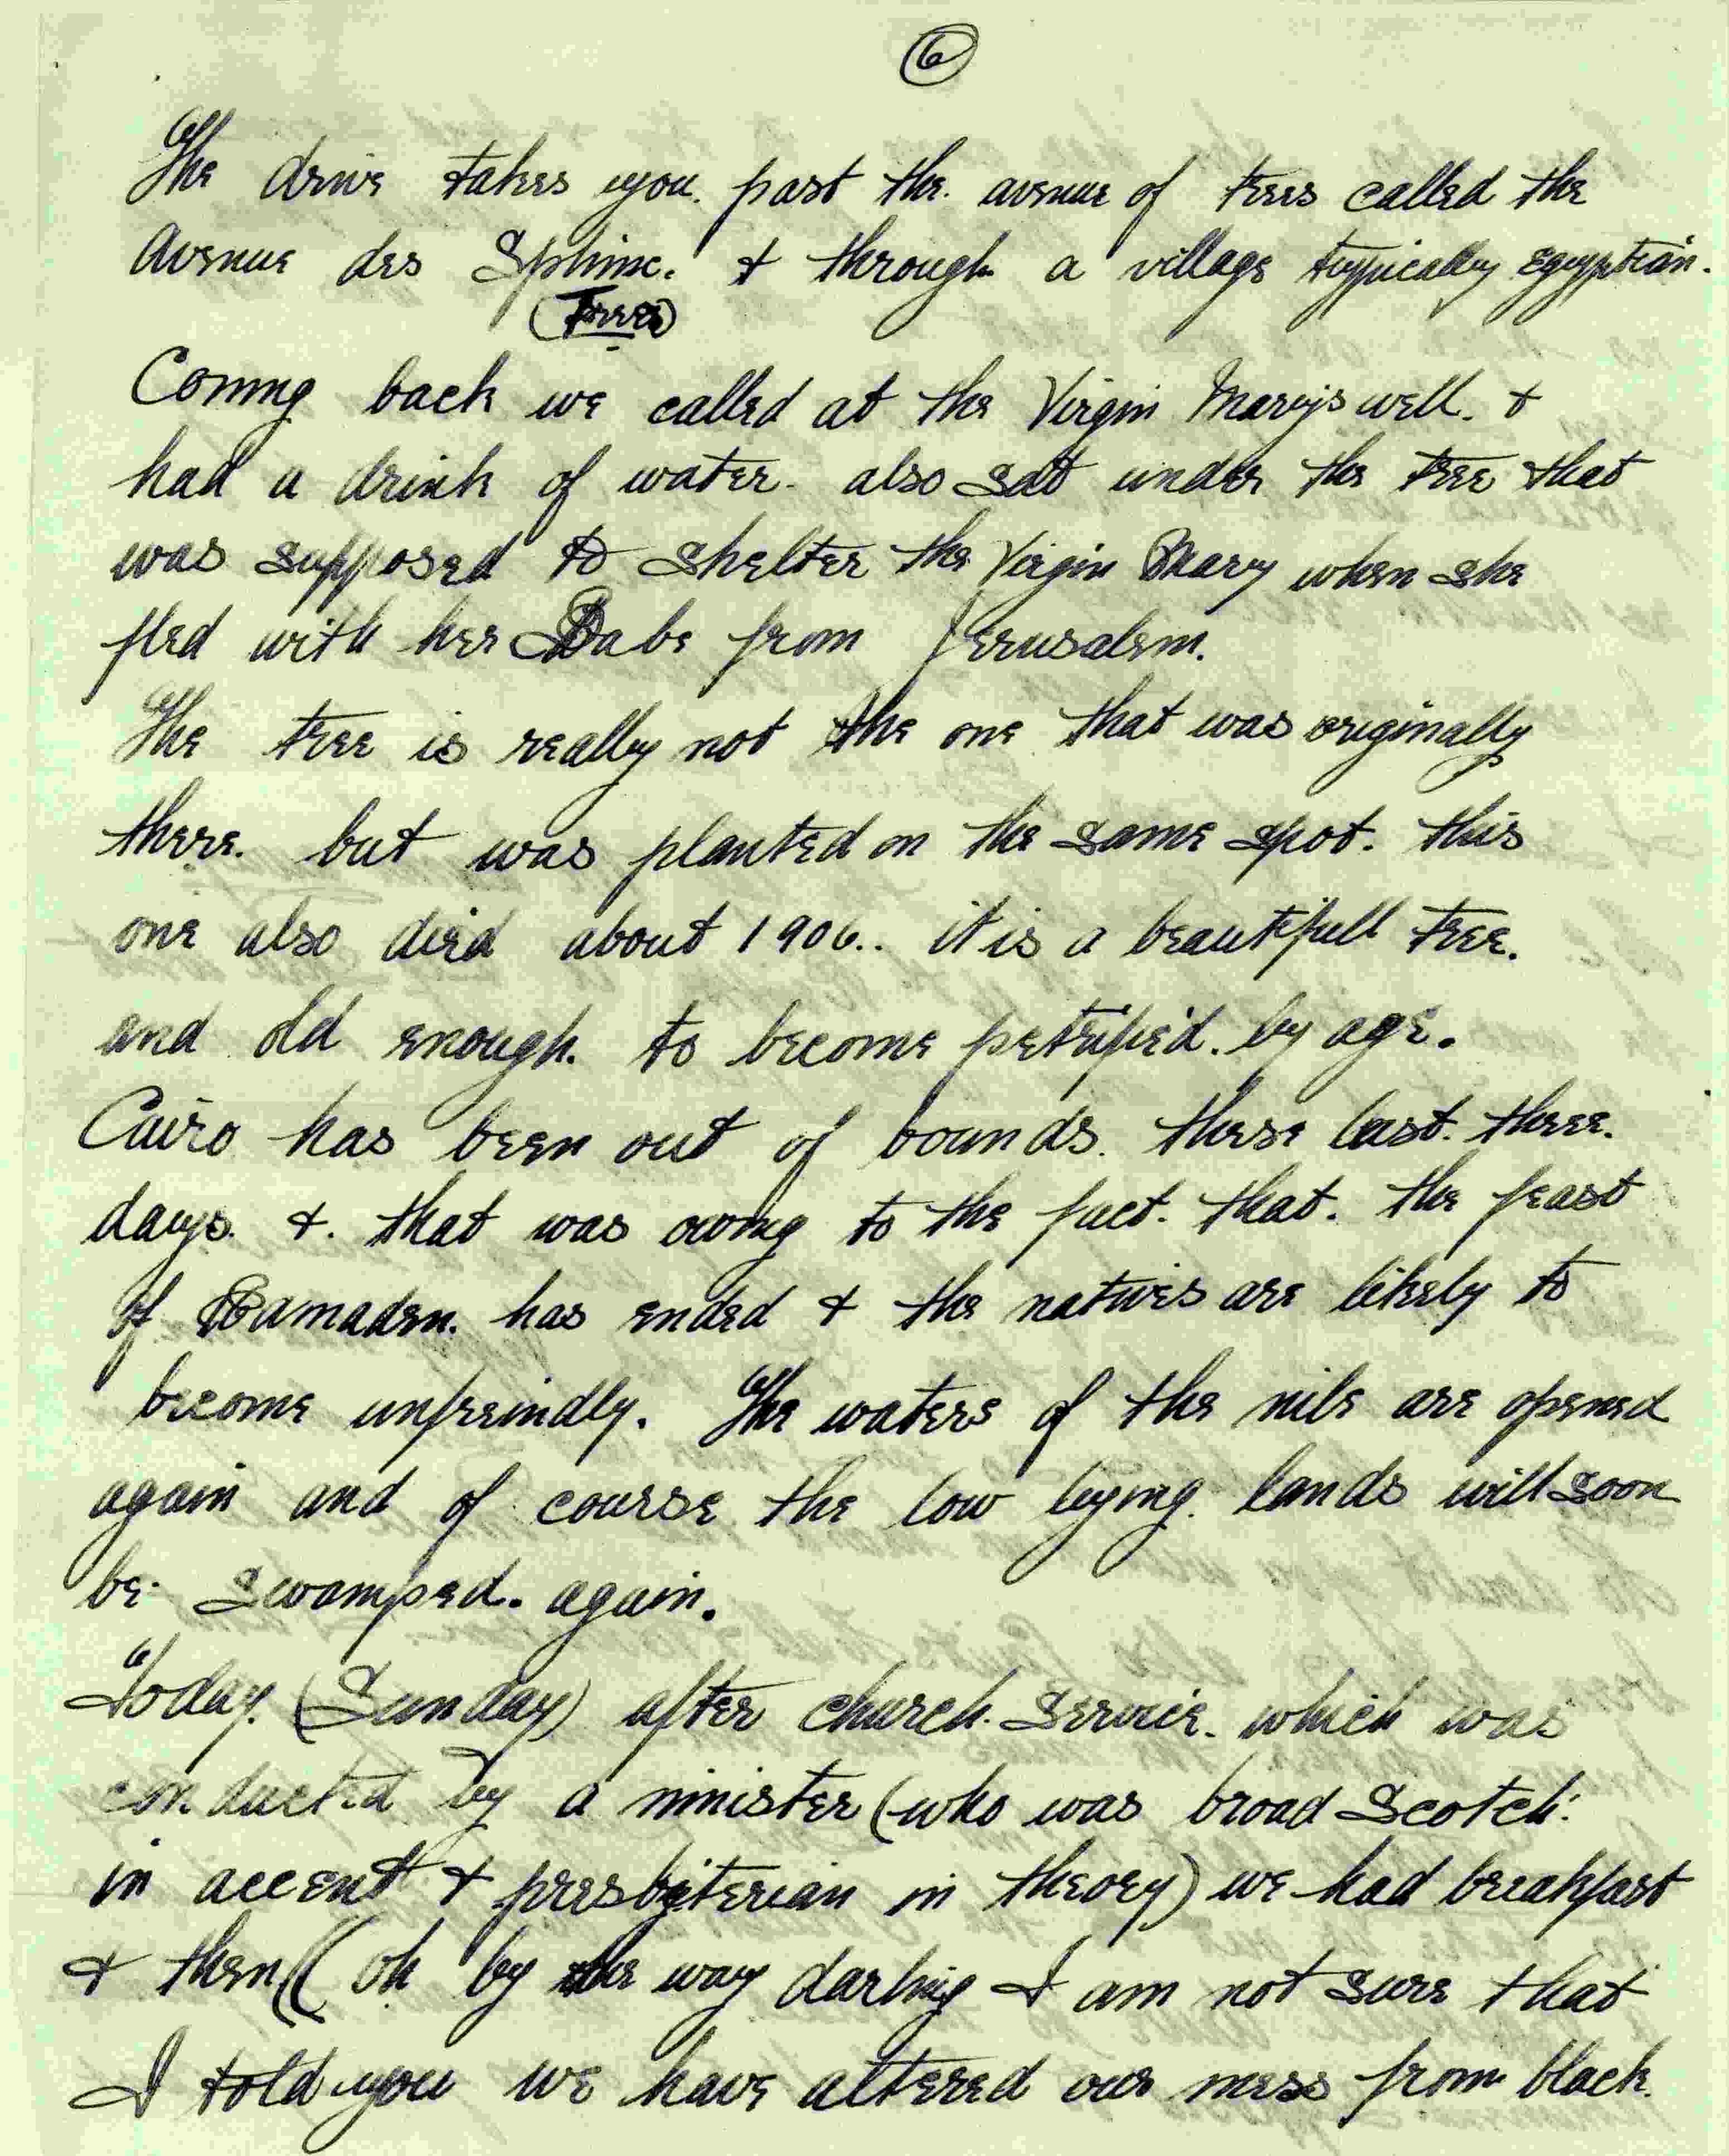 6
The drive takes you. past the. avenue of trees called the
Avenue des Sphinx. + through a village typically egyptian.
(Trees)
Coming back we called at the Virgin Mary's well. +
had a drink of water. also sat under the tree that
was supposed to shelter the Virgin Mary when she
fled with her Babe from Jerusalem.
The tree is really not the one that was originally
there. but was planted on the same spot. this
one also died about 1906.. it is a beautifull tree.
and old enough. to become petrified. by age.
Cairo has been out of bounds. these last. three.
days. +. that was owing to the fact. that. the feast
of Ramaden. has ended + the natives are likely to
become unfreindly. The waters of the nile are opened
again and of course the low lying. lands will soon
be. swamped. again.
Today. (Sunday) after church. service. which was
conducted by a minister (who was broad Scotch.
in accent + presbyterian in theory) we had breakfast
+ then (( oh by the way darling I am not sure that
I told you we have altered our mess from black.